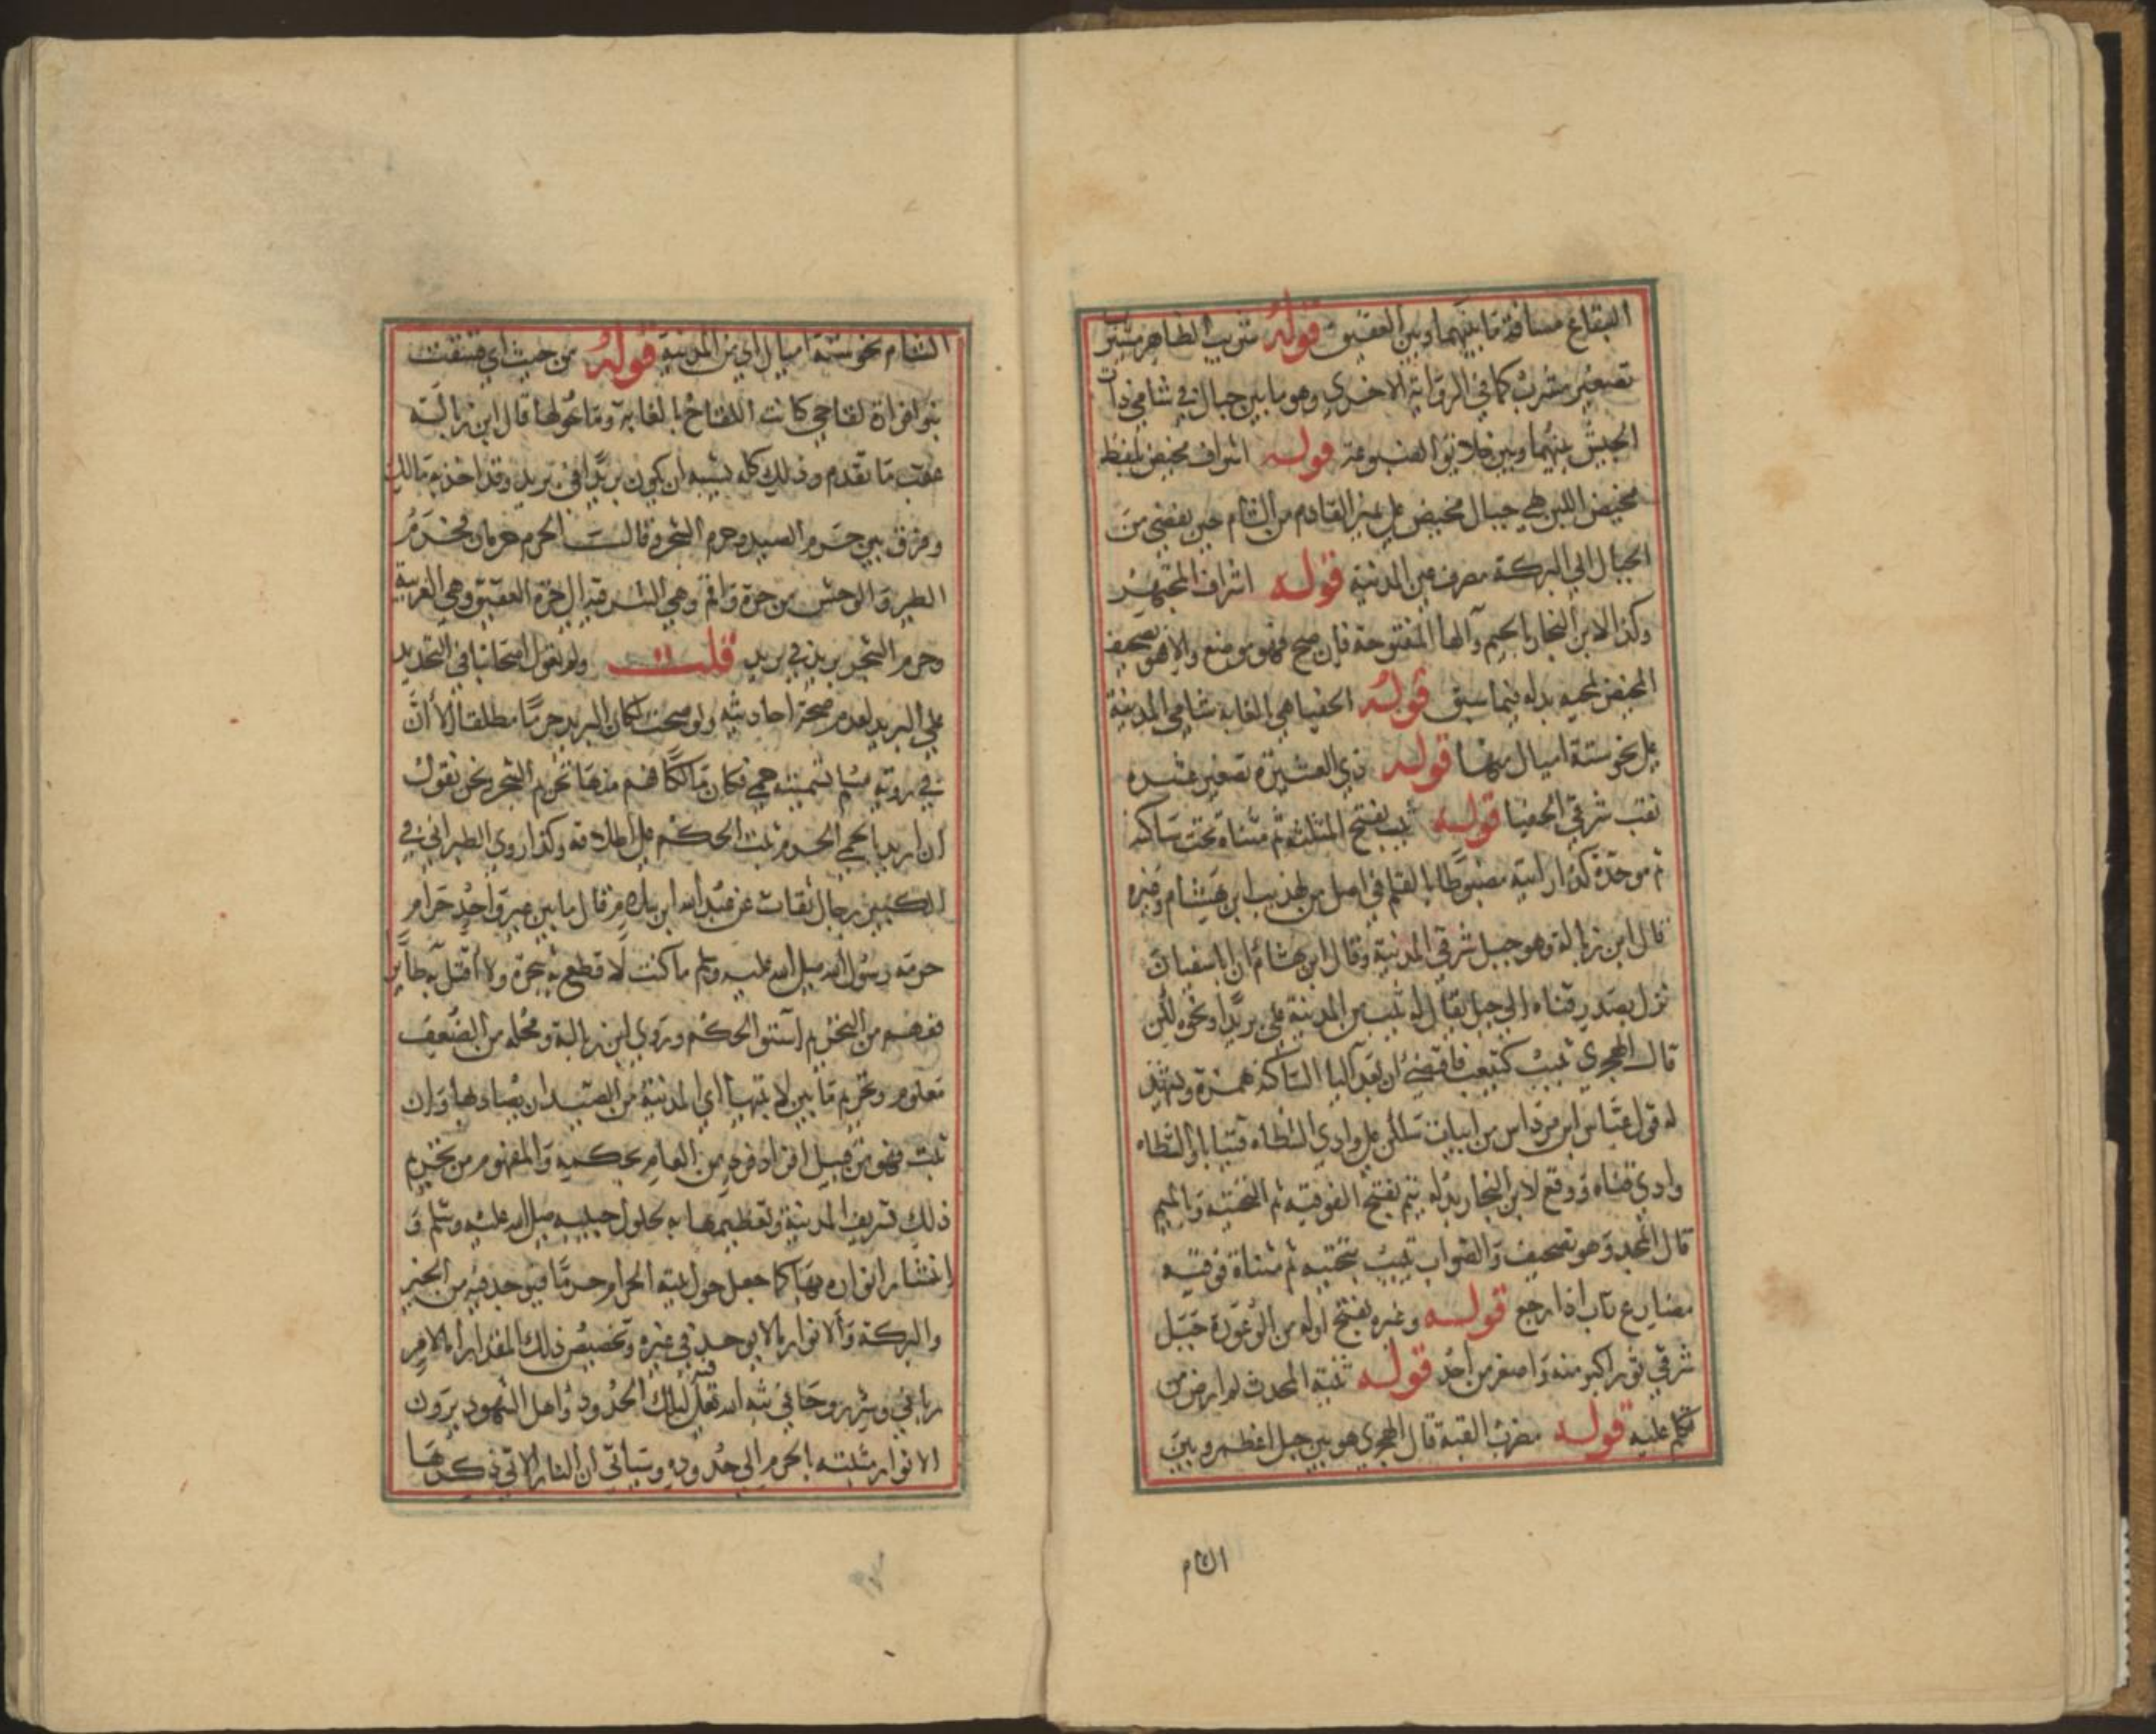 البقاع مسافة ما بينهما وبين العقيق قوله شريب الظاهر مشيرب
تصغير مشرب كما في الرواية الاخري وهو ما بين جبال في شامي ذات
الجيش بينها وبين خلائق الضبوعة قوله اشراف مخيض بلفظ
مخيض اللبن هي جبال مخيض علي يمين القادم من الشام حين يفضي من
الجبال الي البركة مصرف عين المدينة قوله اشراف المجتهر
وكذا لابن النجار بالجيم والها المفتوحة فان صح فهو موضع والا فهو تصحيف
المخيض لمجيه بدله فيما سبق قوله الحفيا هي الغابة شامي المدينة
علي نحو ستة اميال منها قوله ذي العشيرة تصغير عشرة
نقب شرقي الحفيا قوله ثيب بفتح المثلثة ثم مثناة تحت ساكنة
ثم موحدة كذا رايته مضبوطا بالقلم في اصل من تهذيب ابن هشام وغيره
قال ابن زبالة وهو جبل شرقي المدينة وقال ابن هشام ان ابا سفيان
نزل بصدر قناه الي جبل يقال له ثيب من المدينة علي بريد او نحوه لكن
قال الهجري ثيب كتيعب فاقتضي ان بعد اليا الساكنة همزة ويشهد
له قول عباس ابن مرداس من ابيات سلكن علي وادي الشظاه فتيابا والشظاه
وادي قناه ووقع لابن النجار بدله تيم بفتح الفوقية ثم التحتية والميم
قال المجد وهو تصحيف والصواب يتيب بتحتيه ثم مثناة فوقيه
مضارع تاب اذا رجع قوله وعيره بفتح اوله من الوعورة جبل
شرقي ثور اكبر منه واصغر من احد قوله ثنية المحدث لم ار من
تكلم عليه قوله مضرب القبة قال الهجري هو بين جبل اعظم وبين
الشام
الشام نحو ستة اميال اي من المدينة قوله من حيث اي
بنوا فزاة لقاحي كانت اللقاح بالغابة وما حولها قال ابن زبالة
عقب ما تقدم وذلك كله يشبه ان يكون بريدا في بريد وقد اخذ به مالك
وفرق بين حرم الصيد وحرم الشجر وقالت الحرم حرمان فحرم
الطير والوحش من حرة واقم وهي الشرقية الي حرة العقيق وهي الغربية
وحرم الشجر بريد في بريد قلت ولم يقول اصحابنا في التحديد
علي البريد لعدم صحة احاديثه ولو صحت لكان البريد حرما مطلقا الا ان
في رواية مسلم تسميته حمي فكان مالكا فهم منها تحريم الشجر نحن نقول
ان اريد بالحمي الحرم ثبت الحكم علي اطلاقه وكذا روي الطبراني في
الكبير برجال ثقات عن عبد الله ابن سلام قال ما بين عير واحد حرام
حرمه رسول الله صلي الله عليه وسلم ما كنت لاقطع به شجرة ولا اقتل به طايرا
ففهم من التحريم استوا الحكم وروي ابن زبالة ومحله من الضعف
معلوم وتحريم ما بين لابتيها اي المدينة من الصيد ان يصاد بها وان
ثبت فهو من قبيل افراد فرد من العام بحكمه والمفهوم من تحريم
ذلك تشريف المدينة وتعظيمها به لحلول حبيبه صلي الله عليه وسلم و
انتشار انواره بها كما جعل حول بيته الحرام حرما فيوجد فيه من الخير
والبركة والانوار ما لا يوجد في غيره وتخصيص ذلك المقدار اما لامر
رباني وسر روحاني بثه الله تعالي لتلك الحدود واهل الشهود يرون
الانوار مثبتة بالحرم الي حدوده وسياتي ان النار الاتي ذكرها